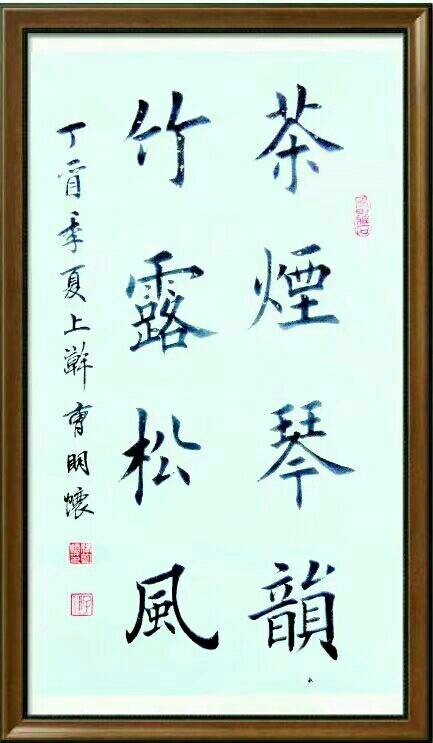 茶煙琴韻
竹露松風
丁酉季夏上澣曹明懷